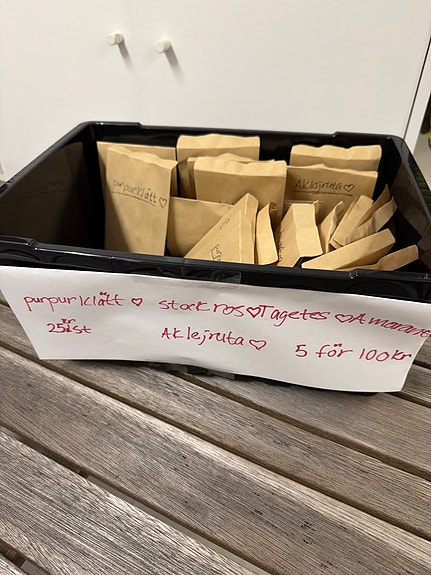 purpurklätt ♡
Aklejruta ♡
purpurklätt ♡ stockros ♡ Tagetes ♡ Amarant
25kr st Aklejruta ♡ 5 för 100kr